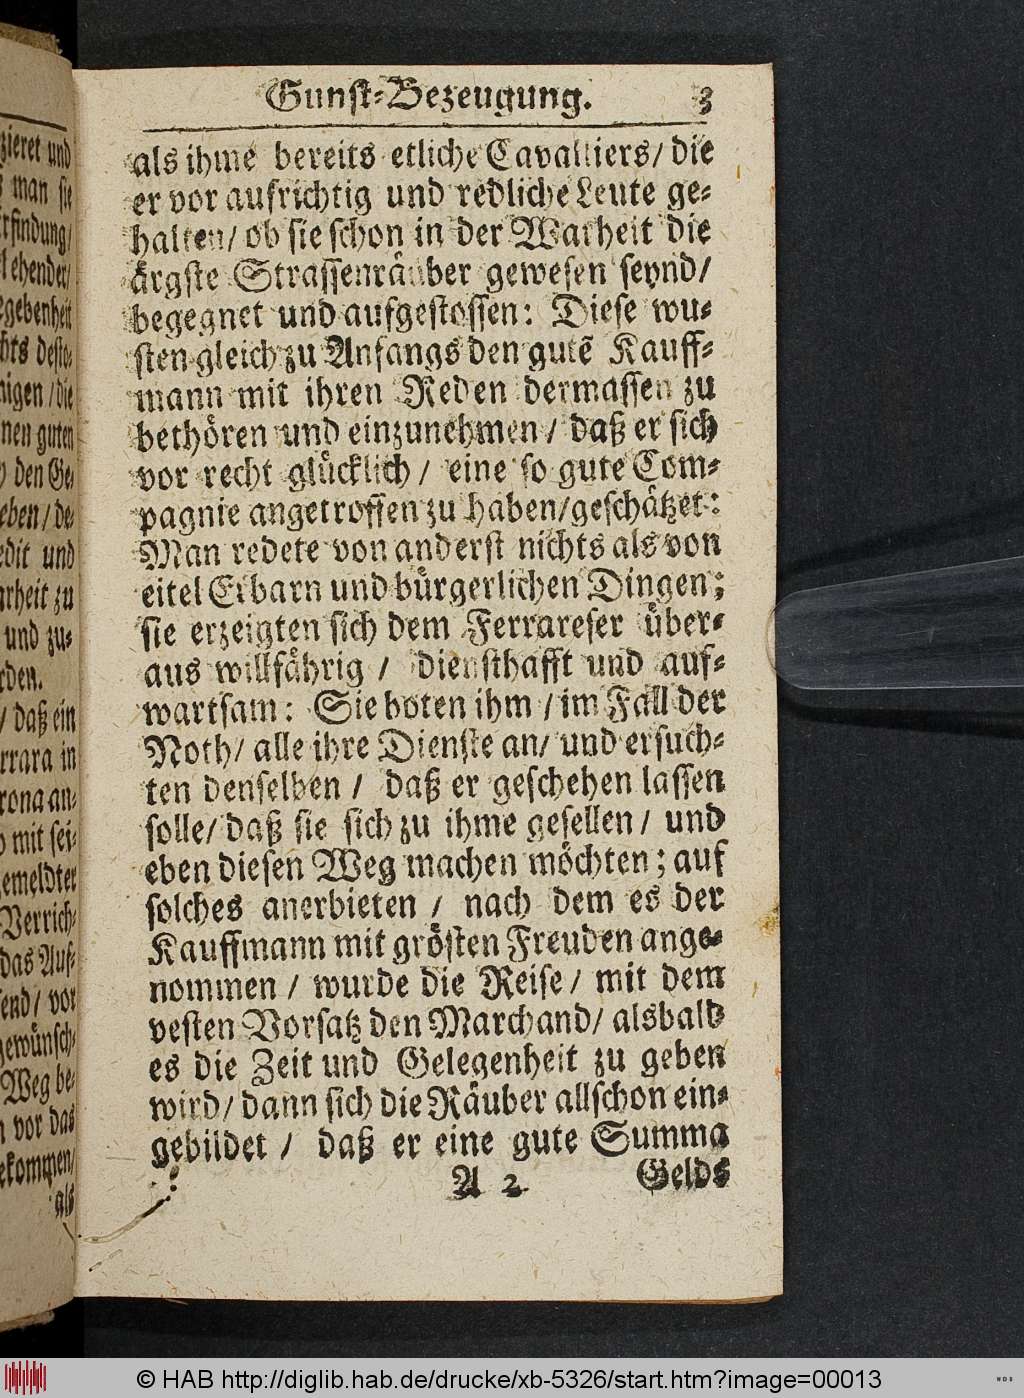 Gunst-Bezeugung. 3
als ihme bereits etliche Cavalliers/ die
er vor aufrichtig und redliche Leute ge-
halten/ ob sie schon in der Warheit die
ärgste Strassenräuber gewesen seynd/
begegnet und aufgestossen: Diese wu-
sten gleich zu Anfangs den gutẽ Kauff-
mann mit ihren Reden dermassen zu
bethören und einzunehmen / daß er sich
vor recht glücklich / eine so gute Com-
pagnie angetroffen zu haben/geschätzet:
Man redete von anderst nichts als von
eitel Erbarn und bürgerlichen Dingen;
sie erzeigten sich dem Ferrareser über-
aus willfährig / diensthafft und auf-
wartsam: Sie boten ihm / im Fall der
Noth/ alle ihre Dienste an/ und ersuch-
ten denselben / daß er geschehen lassen
solle/ daß sie sich zu ihme gesellen / und
eben diesen Weg machen möchten; auf
solches anerbieten / nach dem es der
Kauffmann mit grösten Freuden ange-
nommen / wurde die Reise / mit dem
vesten Vorsatz den Marchand/ alsbald
es die Zeit und Gelegenheit zu geben
wird/ dann sich die Räuber allschon ein-
gebildet / daß er eine gute Summa
A 2 Gelds
zieret und
man sie
rfindung/
lehender/
gebenheit
hts desto-
nigen / die
nen guten
den Ge-
eben / de-
edit und
arheit zu
und zu-
rden.
/ daß ein
rrara in
rona an-
mit sei-
emeldter
Verrich-
das Auf-
send/ vor
gewünsch-
Weg be-
vor das
ekommen/
als
© HAB http://diglib.hab.de/drucke/xb-5326/start.htm?image=00013